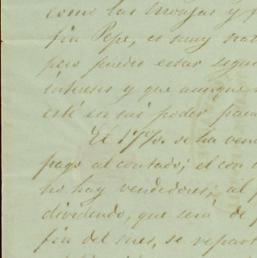 como las monjas y f
fin Pepe, es muy nat
pero puedes estar segu
intereses y que aunque
esté en mi poder para
El 17%. se ha ven
pago al contado; el con
no hay vendedores; al p
dividendo, que será de
fin del mes, se repart